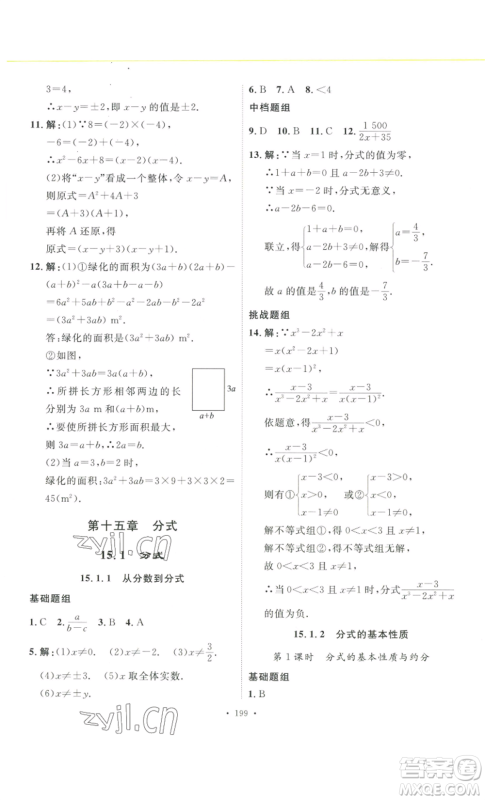 3=4,
∴x−y=±2,即x−y的值是±2.
11.解:(1)∵8=(−2)×(−4),
−6=(−2)+(−4),
∴x²−6x+8=(x−2)(x−4).
(2)将“x−y”看成一个整体,令x−y=A,
则原式=A²+4A+3
=(A+3)(A+1).
再将A还原,得
原式=(x−y+3)(x−y+1).
12.解:(1)①绿化的面积为(3a+b)(2a+b)
−(a+b)²
=6a²+5ab+b²−a²−2ab−b²
=5a²+3ab,
答:绿化的面积是(5a²+3ab) m².
②如图,
∵3a²+3ab=3a(a+b),
∴所拼长方形相邻两边的长
分别为3a m和(a+b) m.
3a
a+b
(2)当a=3,b=2时,
第十五章 分式
zyjl.cn
15.1 分式
15.1.1 从分数到分式
基础题组
1.C 2.a/(b−c) 3.B 4.A
5.解:(1)x≠0. (2)x≠0. (3)x≠3/2.
(4)x≠3. (5)x取全体实数.
(6)x≠±2.
zyjl.cn
6.B 7.A 8.<4
中档题组
9.D 10.B 11.C 12.1 500/(2x+35)
13.解:∵当x=1时,分式的值为零,
∴1+a+b=0,且a−2b+3≠0.
∵当x=3时,分式无意义,
∴a−2b−6=0.
联立,得{1+a+b=0, a−2b+3≠0, a−2b−6=0, 解得{a=4/3, b=−7/3.
故a的值是4/3,b的值是−7/3.
挑战题组
14.解:∵x³−2x²+x
=x(x−1)²,
∴(x−3)/(x³−2x²+x)=(x−3)/(x(x−1)²).
依题意,得(x−3)/(x(x−1)²)<0,
解不等式组①,得0<x<3且x≠1,
解不等式组②,得不等式组无解,
∴0<x<3且x≠1.
∴当0<x<3且x≠1时,分式(x−3)/(x³−2x²+x)
的值为负.
15.1.2 分式的基本性质
第1课时 分式的基本性质与约分
基础题组
1.B
· 199 ·
答案圈
MXQE.COM